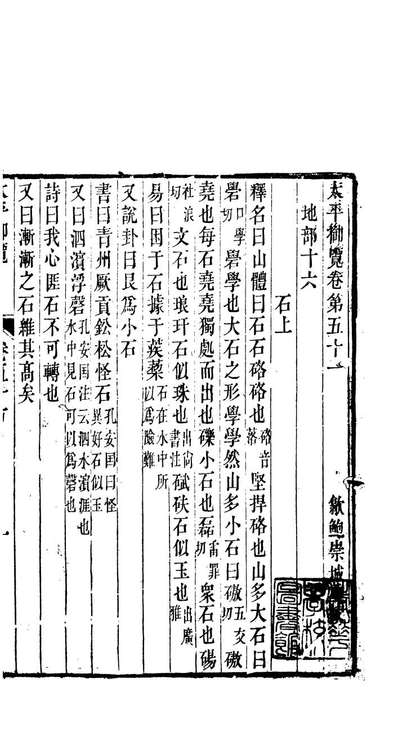 太平御覽卷第五十一　歙鮑崇城
地部十六
石上
釋名曰山體曰石石硌也硌音落堅捍硌也山多大石曰
礐口學切礐學也大石之形學學然山多小石曰磝五交切磝
堯也每石堯堯獨處而出也礫小石也磊雷罪切衆石也碭
社浪切文石也琅玕石似珠也出尚書注碔砆石似玉也出廣雅
易曰困于石據于蒺藜石在水中所以爲險難
又說卦曰艮爲小石
書曰青州厥貢鈆松怪石孔安國曰怪異好石似玉
又曰泗濱浮磬孔安国注云泗水濱涯也水中見石可以爲磬也
詩曰我心匪石不可轉也
又曰漸漸之石維其高矣
太平御覽　卷五十一　一